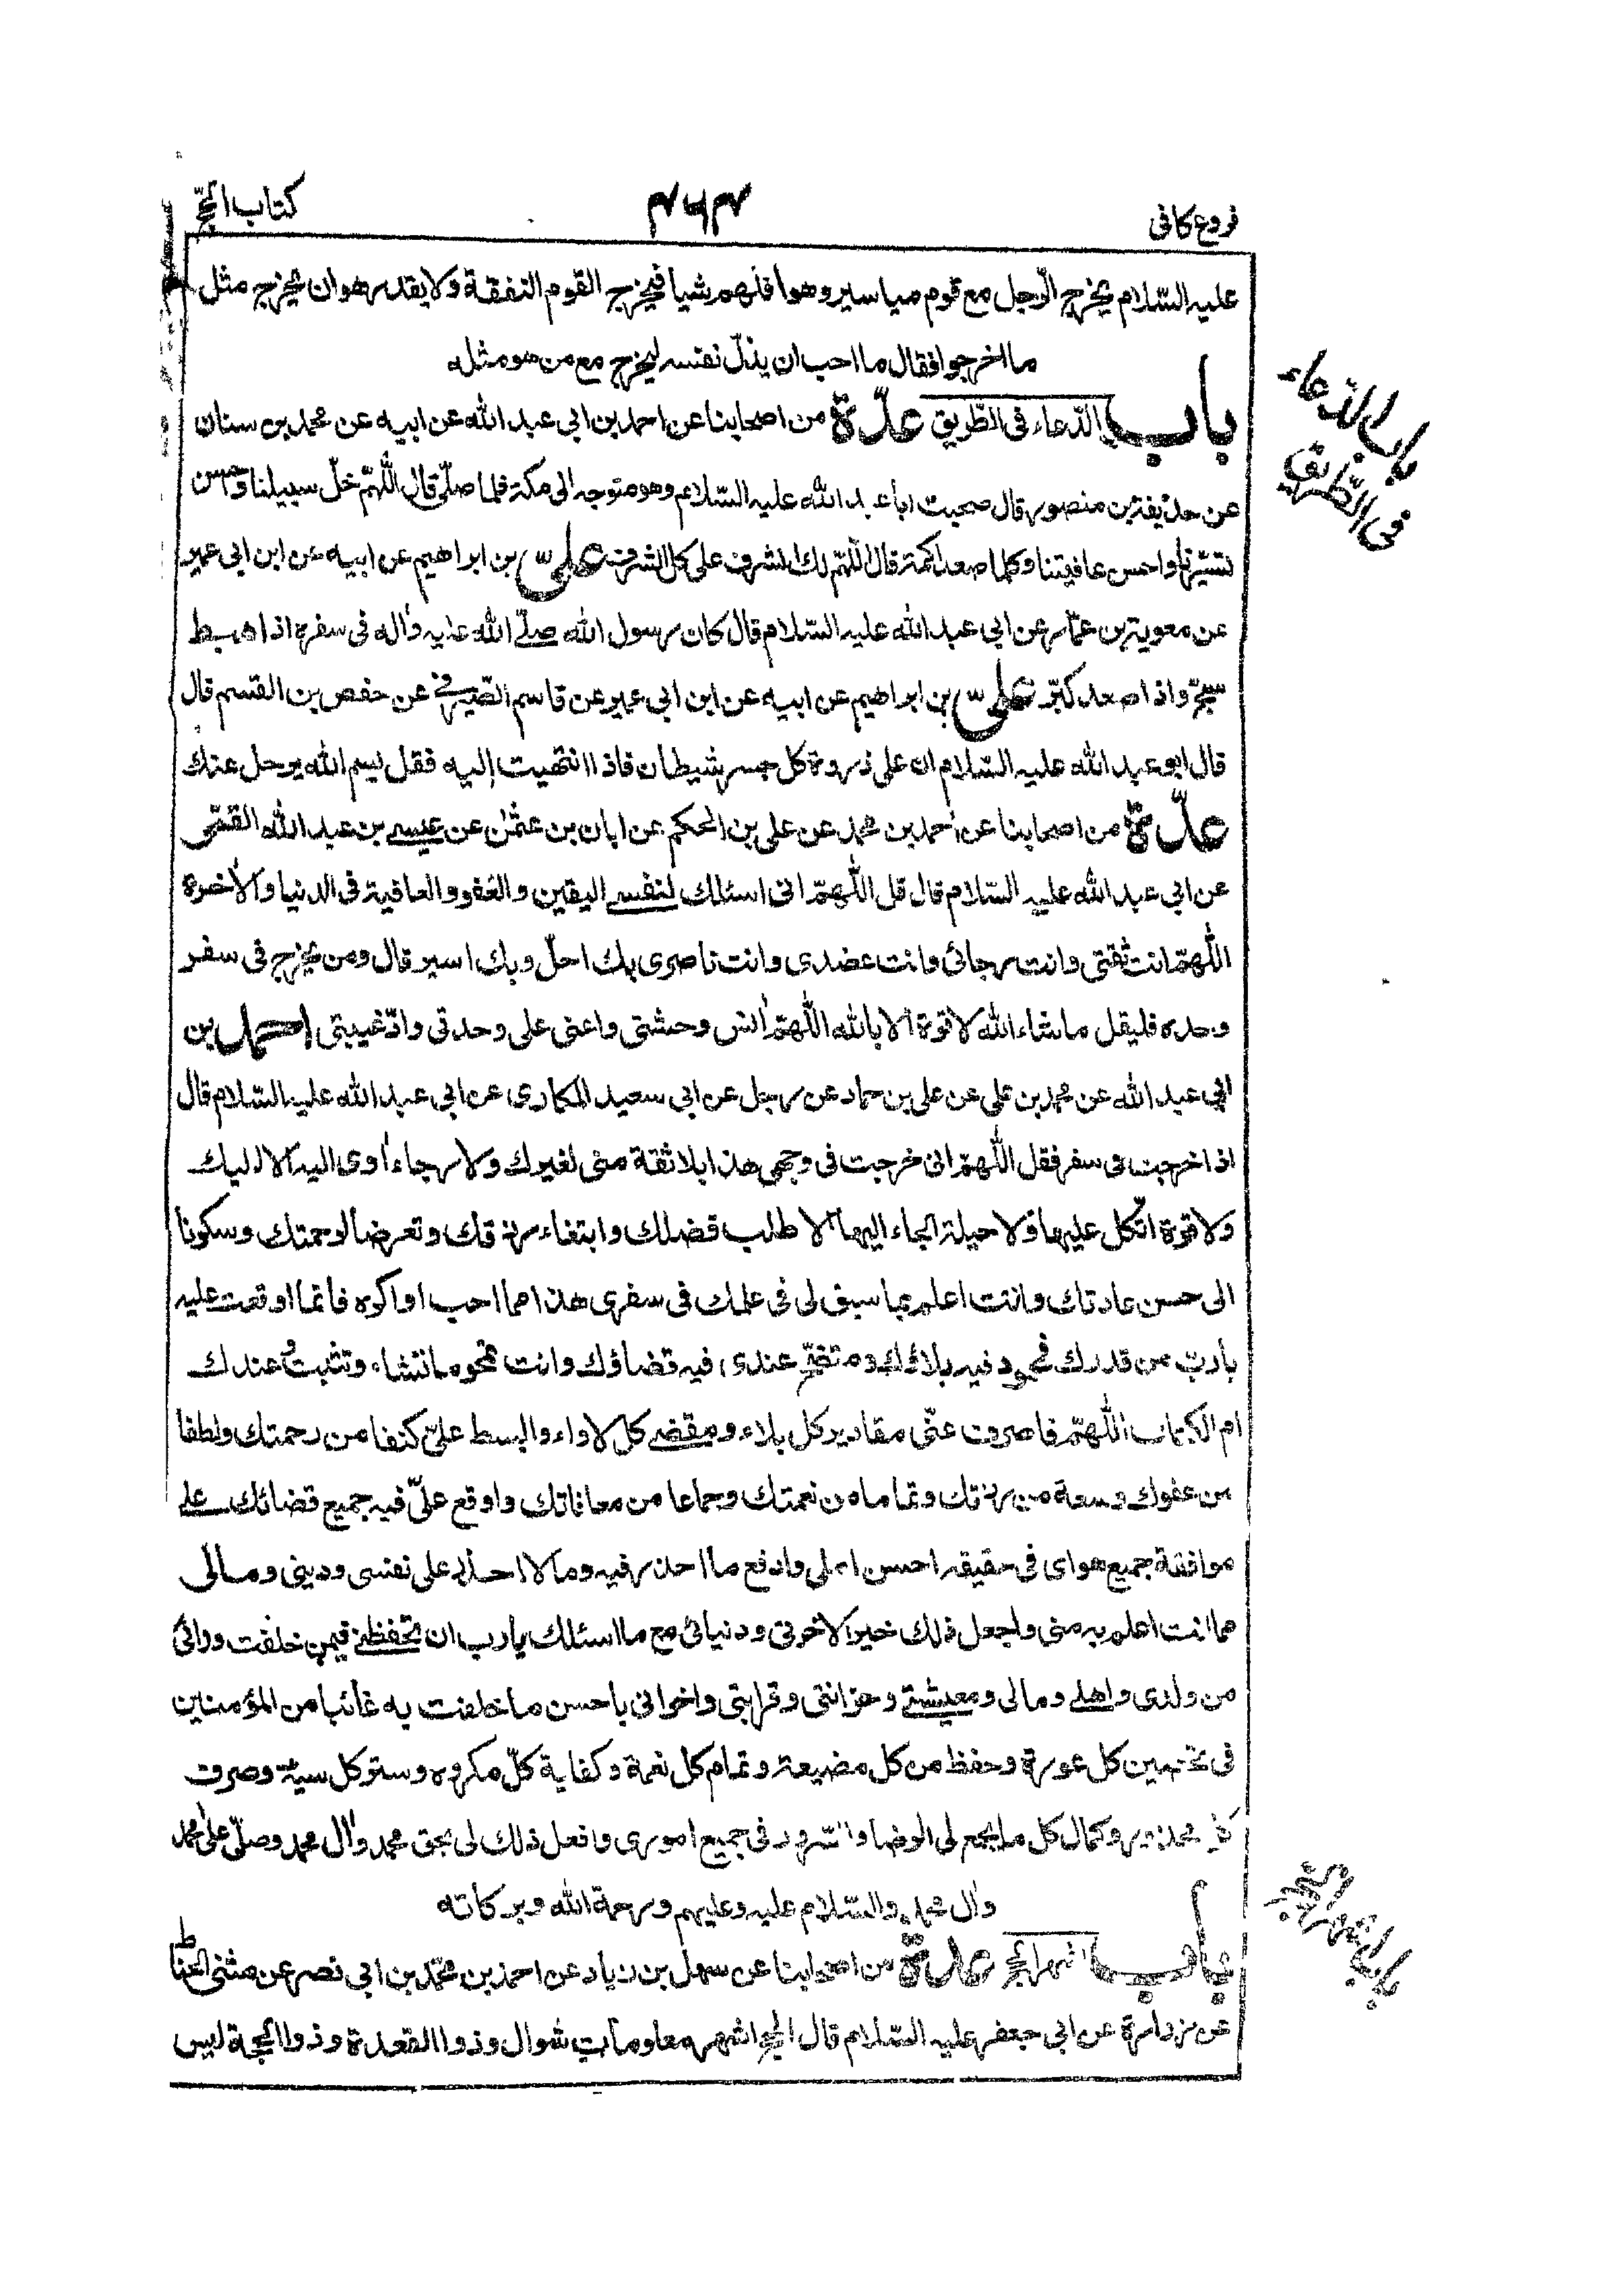 فروع كافى
٤٦٣
كتاب الحجّ
عليه السّلام يخرج الرّجل مع قوم مياسير وهو اقلهم شيا فيخرج القوم النفقة ولا يقدر هو ان يخرج مثل
ما اخرجوا فقال ما احب ان يذلّ نفسه ليخرج مع من هو مثله
باب الدّعاء فى الطّريق عدّة من اصحابنا عن احمد بن ابى عبد الله عن ابيه عن محمد بن سنان
باب الدعاء
فى الطّريق
عن حذيفة بن منصور قال صحبت ابا عبد الله عليه السّلام وهو متوجه الى مكة فلما صلّى قال اللّهمّ خلّ سبيلنا واحسن
تسييرنا واحسن عافيتنا وكلما صعد اكمة قال اللّهمّ لك الشرف على كل الشرف علىّ بن ابراهيم عن ابيه عن ابن ابى عمير
عن معوية بن عمّار عن ابى عبد الله عليه السّلام قال كان رسول الله صلّى الله عليه وآله فى سفره اذا هبط
سبّح واذا صعد كبّر علىّ بن ابراهيم عن ابيه عن ابن ابى عمير عن قاسم الصّيرفى عن حفص بن القسم قال
قال ابو عبد الله عليه السّلام ان على ذروة كل جسر شيطان فاذا انتهيت اليه فقل بسم الله يرحل عنك
عدّة من اصحابنا عن احمد بن محمد عن على بن الحكم عن ابان بن عثمٰن عن عيسى بن عبد الله القمّى
عن ابى عبد الله عليه السّلام قال قل اللّهمّ انى اسئلك لنفسى اليقين والعفو والعافية فى الدنيا والآخرة
اللّهمّ انت ثقتى وانت رجائى وانت عضدى وانت ناصرى بك احلّ وبك اسير قال ومن يخرج فى سفر
وحده فليقل ماشاء الله لا قوة الا بالله اللّهمّ انس وحشتى واعنى على وحدتى وادّ غيبتى احمد بن
ابى عبد الله عن محمد بن على عن على بن حماد عن رجل عن ابى سعيد المكارى عن ابى عبد الله عليه السّلام قال
اذا خرجت فى سفر فقل اللّهمّ انى خرجت فى وجهى هذا بلا ثقة منى لغيرك ولا رجاء آوى اليه الا اليك
ولا قوة اتّكل عليها ولا حيلة الجاء اليها الا طلب فضلك وابتغاء رزقك وتعرضا لرحمتك وسكونا
الى حسن عادتك وانت اعلم بما سبق لى فى علمك فى سفرى هذا مما احب او اكره فانما اوقعت عليه
يارب من قدرك فمحمود فيه بلاؤك ومتضح عندى فيه قضاؤك وانت تمحو ما تشاء وتثبت وعندك
ام الكتاب اللّهمّ فاصرف عنّى مقادير كل بلاء ومقضى كل لاواء وابسط علىّ كنفا من رحمتك ولطفا
من عفوك وسعة من رزقك وتماما من نعمتك وجماعا من معافاتك واوقع علىّ فيه جميع قضائك على
موافقة جميع هواى فى حقيقة احسن املى وادفع ما احذر فيه وما لا احذر على نفسى ودينى ومالى
مما انت اعلم به منى واجعل ذلك خيرا لآخرتى ودنيائى مع ما اسئلك يارب ان تحفظنى فيمن خلفت ورائى
من ولدى واهلى ومالى ومعيشتى وحزانتى وقرابتى واخوانى باحسن ما خلفت به غائبا من المؤمنين
فى تحصين كل عورة وحفظ من كل مضيعة وتمام كل نعمة وكفاية كلّ مكروه وستر كل سيّئة وصرف
كل محذور وكمال كل ما يجمع لى الرضا والسّرور فى جميع امورى وافعل ذلك لى بحق محمد وآل محمد وصلّ على محمد
وآل محمد والسّلام عليه وعليهم ورحمة الله وبركاته
باب اشهر الحج عدّة من اصحابنا عن سهل بن زياد عن احمد بن محمّد بن ابى نصر عن مثنى الحنّاط
باب اشهر الحج
عن زرارة عن ابى جعفر عليه السّلام قال الحج اشهر معلومات شوال وذوا القعدة وذوا الحجة ليس